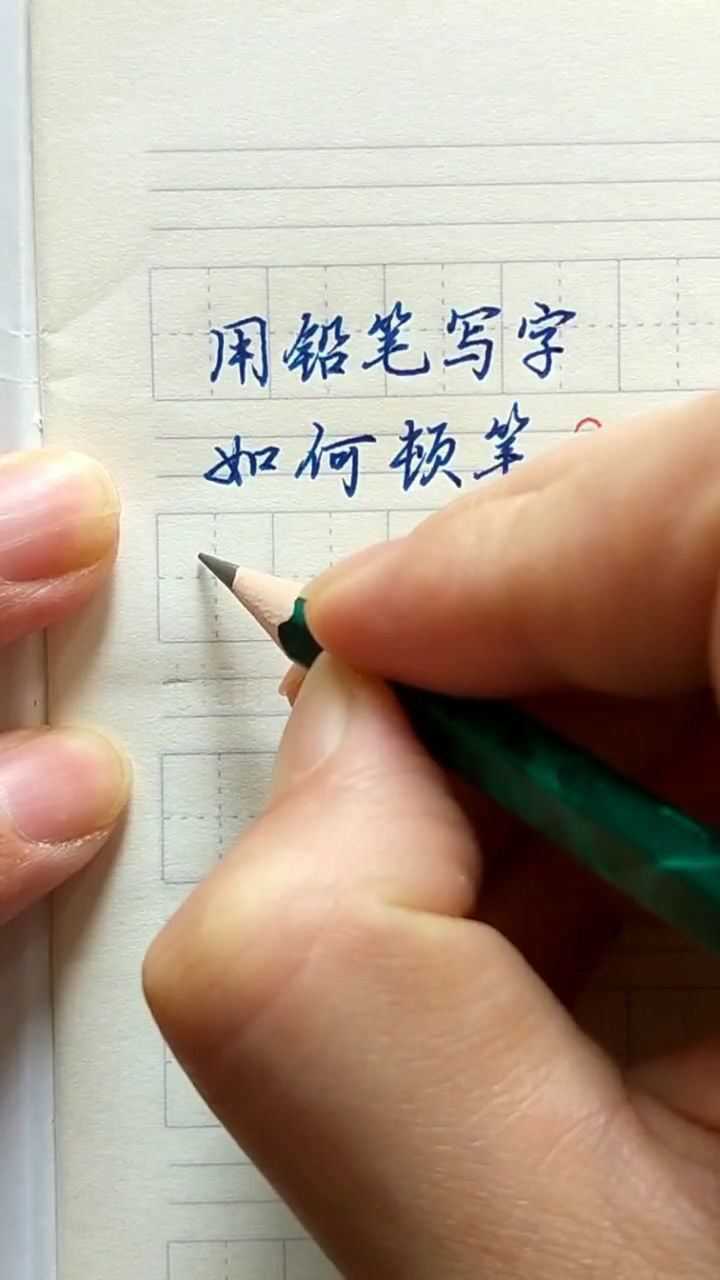 用铅笔写字
如何顿笔